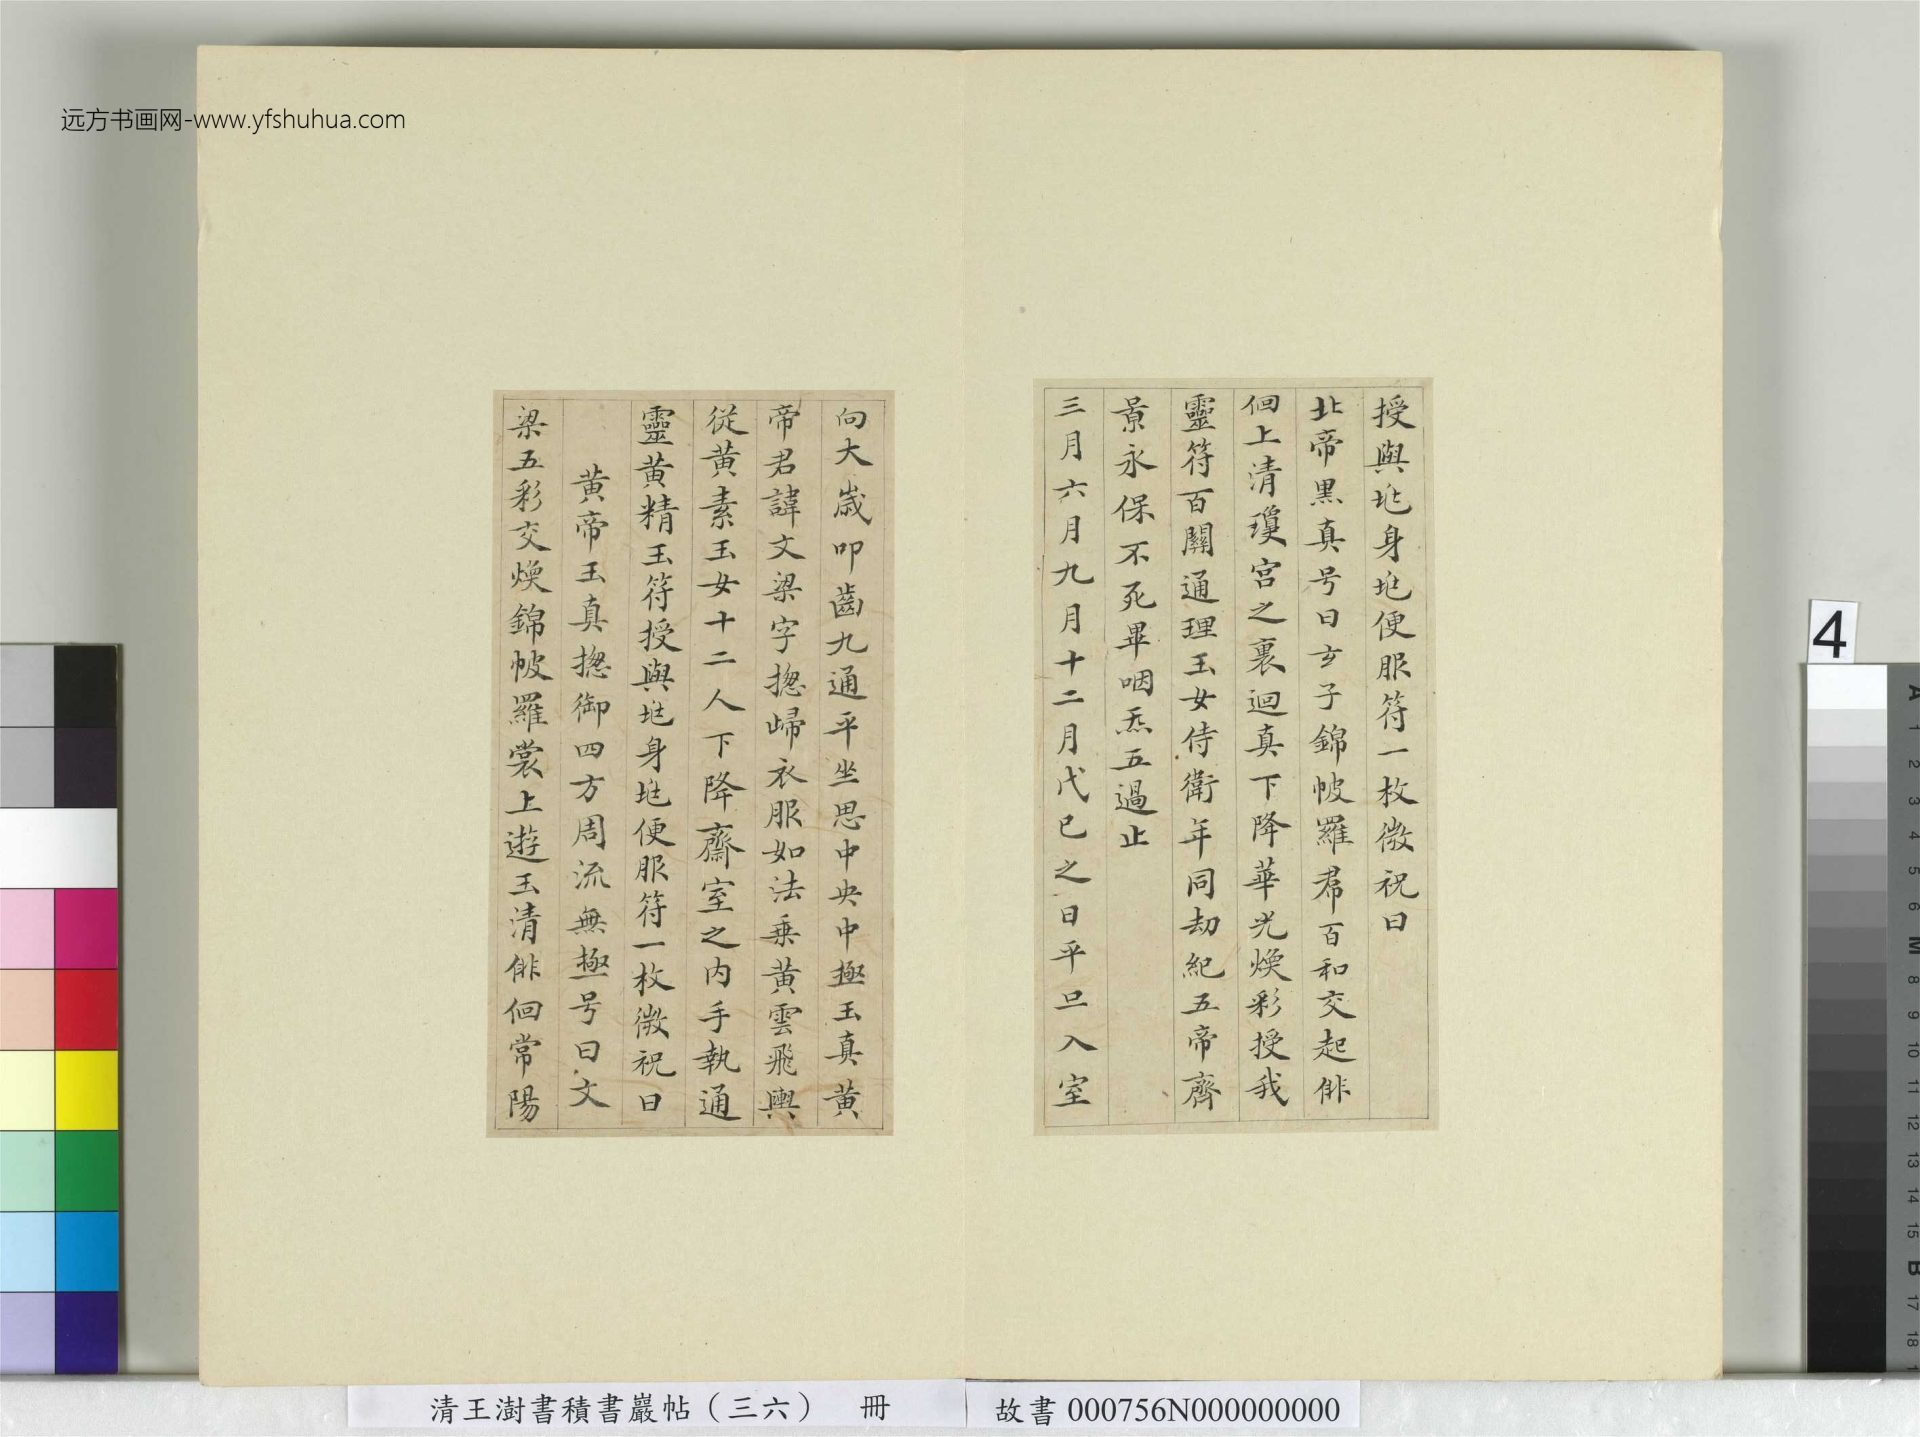 远方书画网-www.yfshuhua.com
授與兆身兆便服符一枚微祝曰
北帝黒真号曰玄子錦帔羅帬百和交起俳
佪上清瓊宮之裏迴真下降華光煥彩授我
靈符百關通理玉女侍衛年同劫紀五帝齊
景永保不死畢咽炁五過止
三月六月九月十二月戊巳之日平旦入室
向大歲叩齒九通平坐思中央中極玉真黃
帝君諱文梁字揔歸衣服如法乗黃雲飛輿
從黃素玉女十二人下降齋室之内手執通
靈黃精玉符授與兆身兆便服符一枚微祝曰
黃帝玉真揔御四方周流無極号曰文
梁五彩交煥錦帔羅裳上遊玉清俳佪常陽
清王澍書積書巖帖（三六） 冊
故書 000756N000000000
4
A 1 2 3 4 5 6 M 8 9 10 11 12 13 14 15 B 17 18